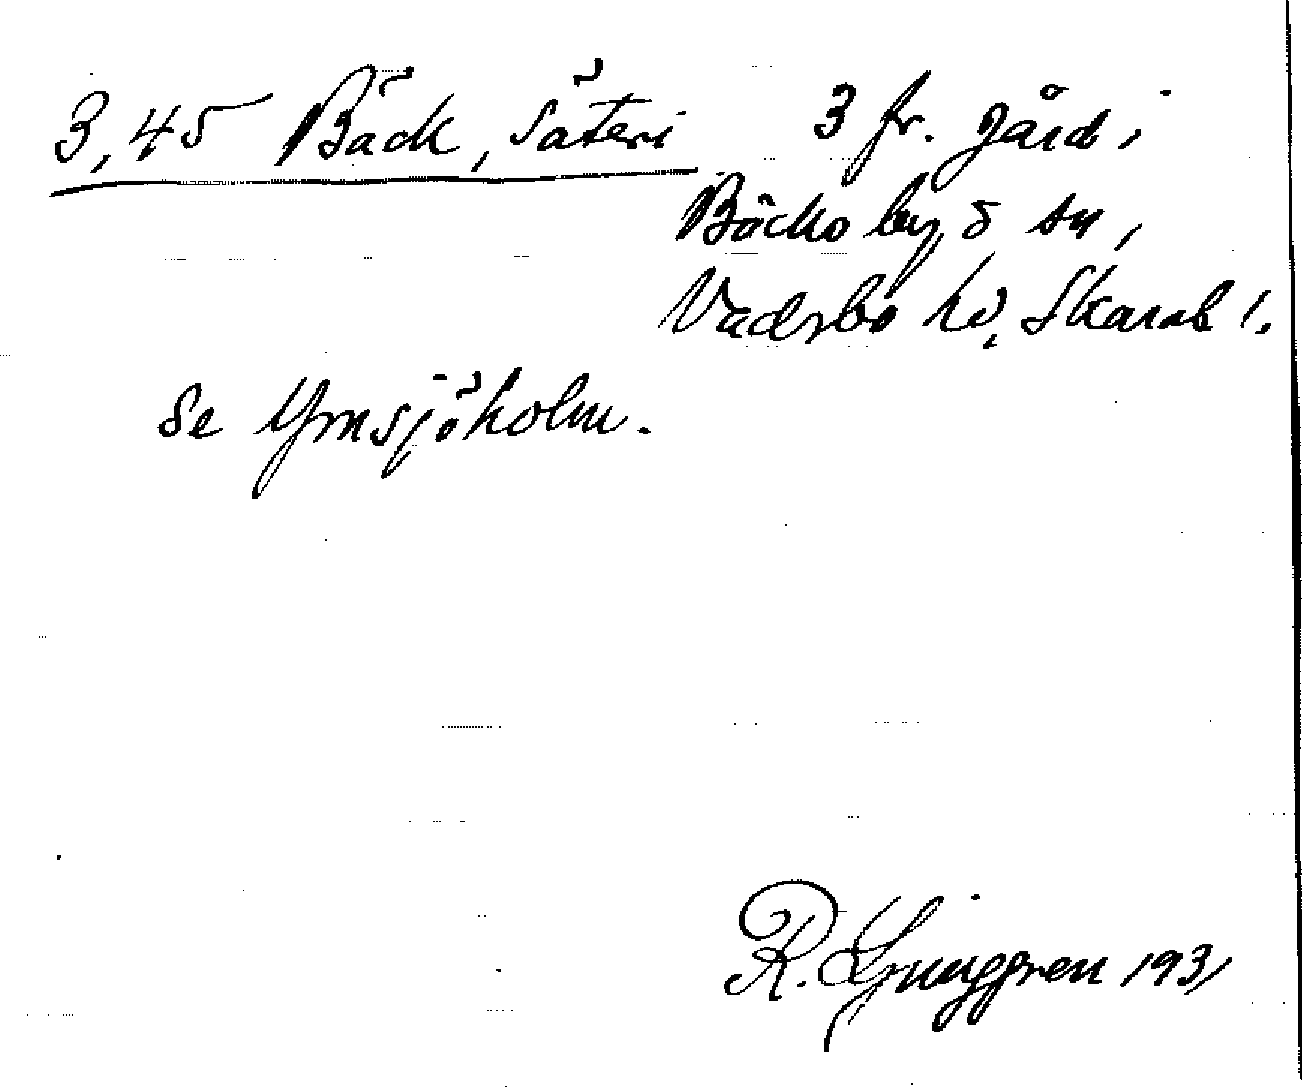 3,45 Bäck, säteri 3 fr. gård i
Bäcks by o sn,
Vadsbo hd, Skarab l.
Se Ymsjöholm.
R. Ljunggren 1931